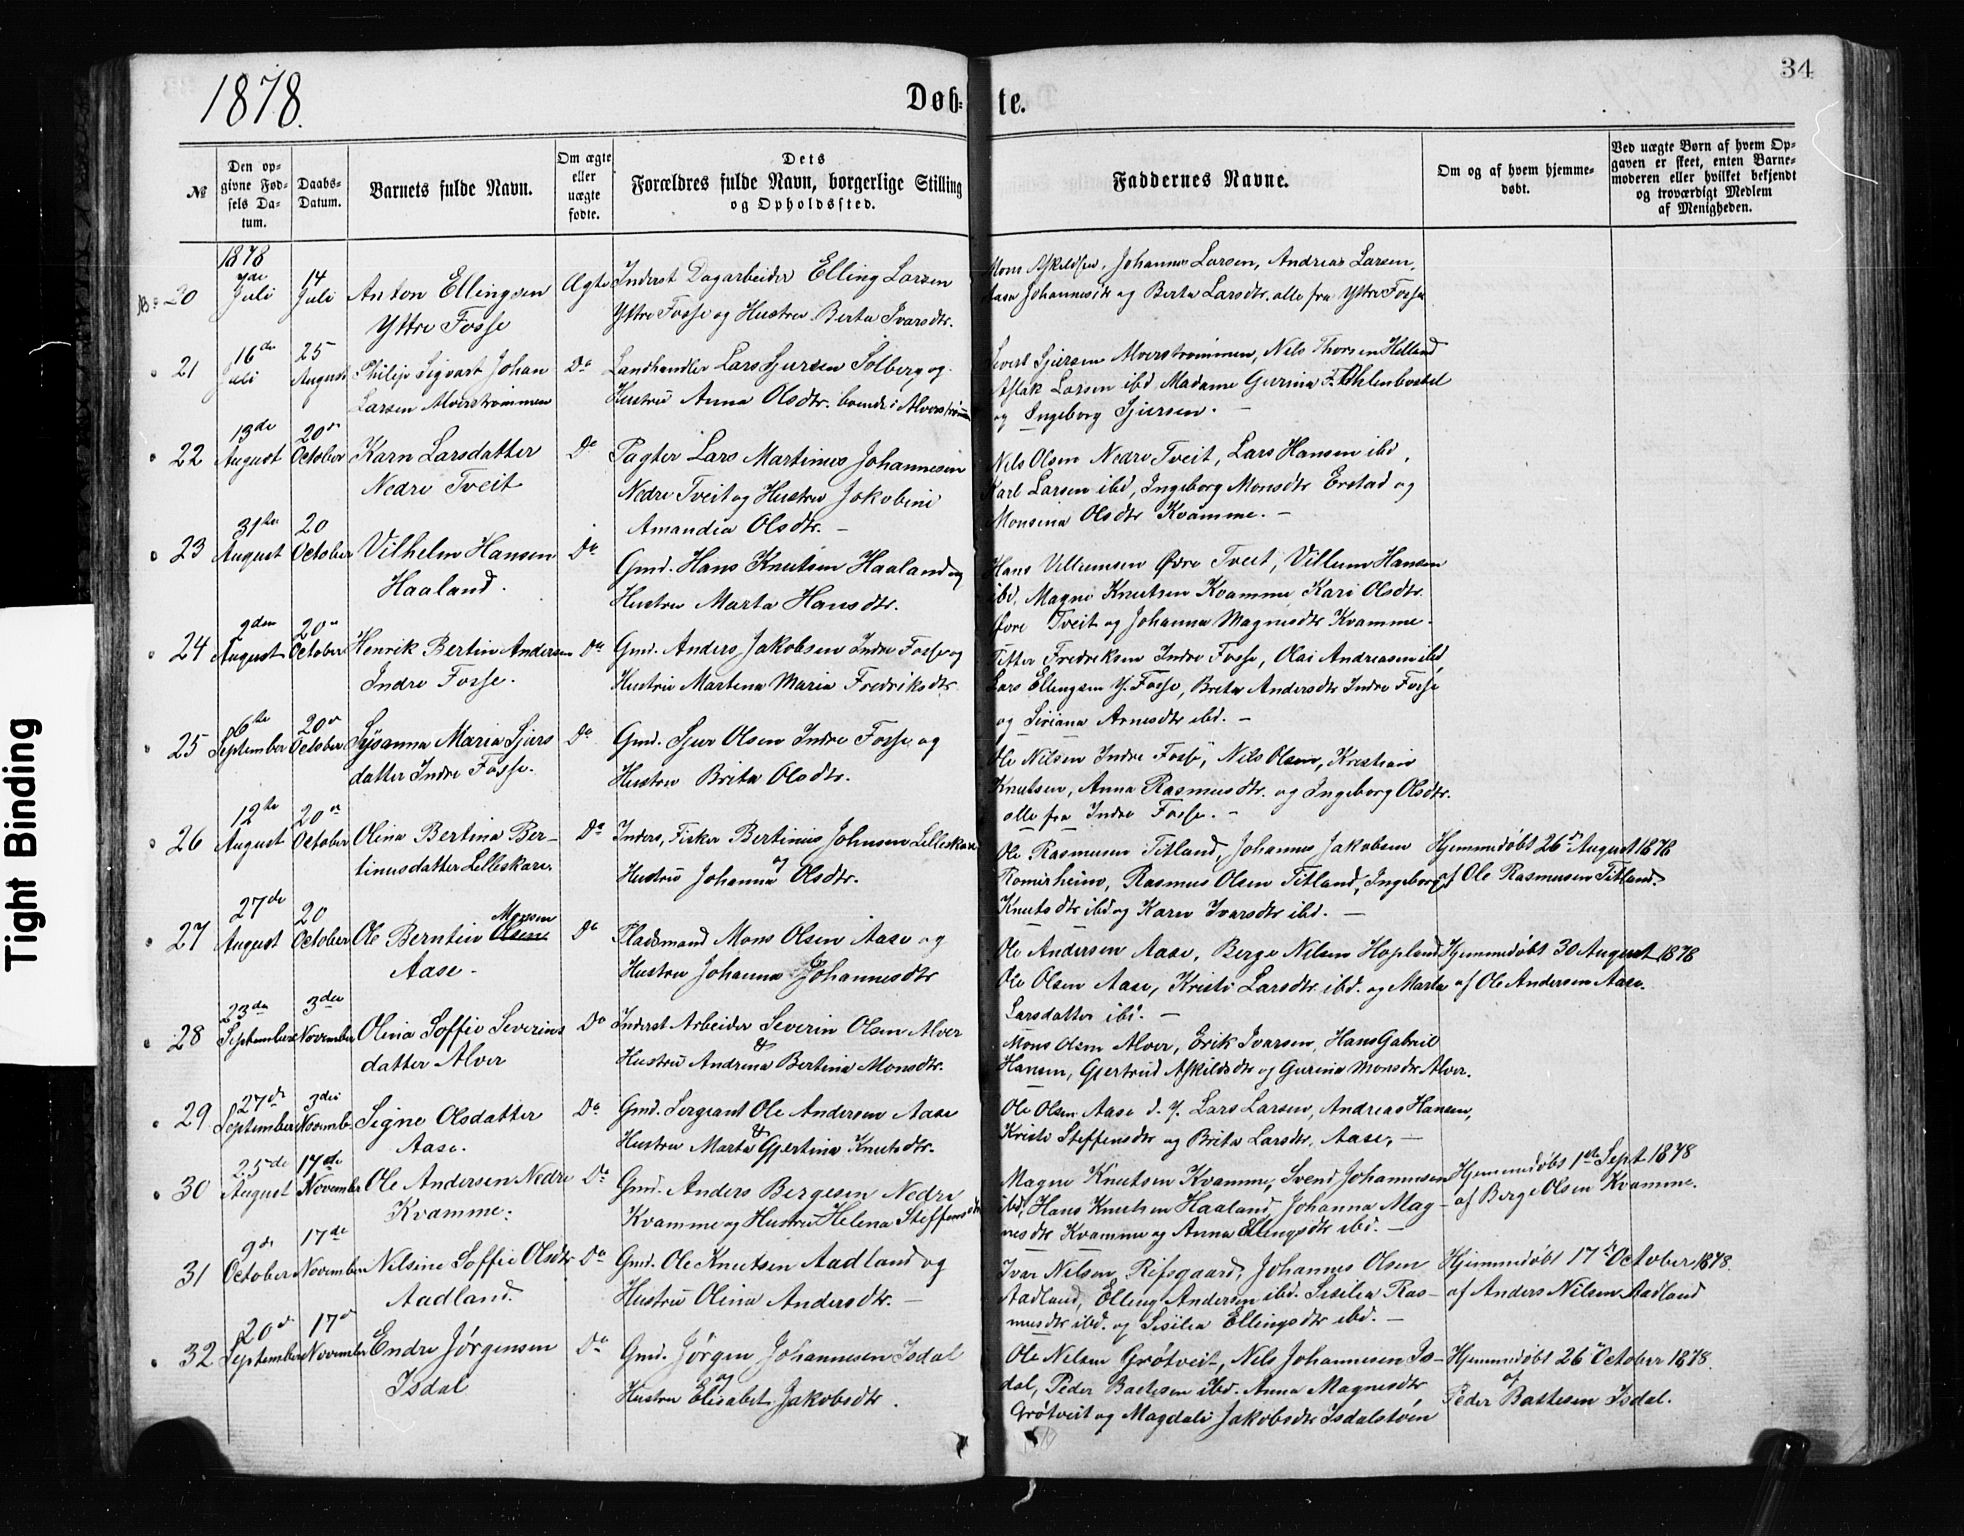 Tight Binding
1878.
Døb-
te.
34
№
Den op-
givne Fød-
sels Da-
tum.
Daabs-
Datum.
Barnets fulde Navn.
Om ægte
eller
uægte
fødte.
Dets
Forældres fulde Navn, borgerlige Stilling
og Opholdssted.
Faddernes Navne.
Om og af hvem hjemme-
døbt.
Ved uægte Børn af hvem Op-
gaven er skeet, enten Barne-
moderen eller hvilket bekjendt
og troværdigt Medlem
af Menigheden.
1878
20
Juli
14
Juli
Anton Ellingsen
Yttre Fosse
Ægte
Inderst Dagarbeider Elling Larsen
Yttre Fosse og Hustru Berta Ivarsdtr.
Mons Askildsen, Johannes Larsen, Andreas Larsen,
Aasa Johannesdtr og Berta Larsdtr. alle fra Yttre Fosse
21
16de
Juli
25
August
Philip Sigvart Johan
Larsen Alverstrømmen
Do
Landhandler Lars Sjursen Solberg og
Hustru Anna Olsdtr. boende i Alverstrømm
Sivert Sjursen Alverstrømmen, Nils Thorsen Helland
Aslak Larsen ibd Madame Gurina F.
og Ingeborg Sjursen. –
22
13de
August
20de
October
Karn Larsdatter
Nedre Tveit
Do
Pagter Lars Martinus Johannesen
Nedre Tveit og Hustru Jakobine
Amandia Olsdtr. –
Nils Olsen Nedre Tveit, Lars Hansen ibd,
Karl Larsen ibd, Ingeborg Monsdtr Erstad og
Monsina Olsdtr Kvamme. –
23
31te
August
20
October
Vilhelm Hansen
Haaland.
Do
Gmd. Hans Knutsen Haaland og
Hustru Marta Hansdtr.
Hans Villumsen Øvre Tveit, Villum Hansen
ibd, Magne Knutsen Kvamme Kari Olsdtr.
Øvre Tveit og Johanna Magnesdtr Kvamme.
24
9den
August
20de
October
Henrik Bertin Andersen
Indre Fosse.
Do
Gmd. Anders Jakobsen Indre Fosse og
Hustru Martena Maria Fredriksdtr.
Titter Fredriksen Indre Fosse, Olai Andreasen ibd,
Lars Ellingsen Y. Fosse, Brita Andersdtr Indre Fosse
og Siriana Arnesdtr ibd. –
25
6te
September
20de
October
Sysanna Maria Sjurs
datter Indre Fosse.
Do
Gmd. Sjur Olsen Indre Fosse og
Hustru Brita Olsdtr.
Ole Nilsen Indre Fosse, Nils Olsen, Kristian
Knutsen, Anna Rasmusdtr. og Ingeborg Olsdtr.
alle fra Indre Fosse. –
26
12te
August
20de
October
Olina Bertina Ber-
tinusdatter Lilleskare.
Do
Inders, Fisker Bertinus Johnsen Lilleskare
og
Hustru Johanna Olsdtr.
Ole Rasmusen Titland, Johannes Jakobsen
Romirheim, Rasmus Olsen Titland, Ingeborg
Knutsdtr ibd og Karen Ivarsdtr ibd. –
Hjemmedøbt 26de August 1878
af Ole Rasmusen Titland.
27
27de
August
20
October
Monsen
Ole Berntin Olsen
Aase.
Do
Pladsmand Mons Olsen Aase og
Hustru Johanna Johannesdtr
Ole Andersen Aase, Berge Nilsen Hopland
Ole Olsen Aase, Kristi Larsdtr. ibd. og Marta
Larsdatter ibd. –
Hjemmedøbt 30 August 1878
af Ole Andersen Aase.
28
23de
September
3den
November
Olina Soffie Severins
datter Alver
Do
Inderst Arbeider Severin Olsen Alver
&
Hustru Andrina Bertina Monsdtr.
Mons Olsen Alver, Erik Ivarsen, Hans Gabriel
Hansen, Gjertrud Askildsdtr og Gurina Monsdtr Alver.
29
27de
September
3den
Novemb.
Signe Olsdatter
Aase.
Do
Gmd. Sergeant Ole Andersen Aase
&
Hustru Marta Gjertina Knutsdtr.
Ole Olsen Aase d. y. Lars Larsen, Andreas Hansen,
Kristi Steffensdtr og Brita Larsdtr, Aase, –
30
25de
August
17de
November
Ole Andersen Nedre
Kvamme.
Do
Gmd. Anders Bergesen Nedre
Kvamme og Hustru Helena Steffensdtr
Magne Knutsen Kvamme, Svend Johannesen
ibd, Hans Knutsen Haaland, Johanna Mag-
nesdtr Kvamme og Anna Ellingsdtr ibd. –
Hjemmedøbt 1ste Sept 1878
af Berge Olsen Kvamme.
31
9de
October
17de
November
Nilsine Soffie Olsdtr
Aadland.
Do
Gmd. Ole Knutsen Aadland og
Hustru Olina Andersdtr. –
Ivar Nilsen Rifsgaard, Johannes Olsen
Aadland, Elling Andersen ibd. Sisilia Ras-
musdtr ibd. og Sisilia Ellingsdtr ibd. –
Hjemmedøbt 17de October 1878.
af Anders Nilsen Aadland
32
20de
September
17de
November
Endre Jørgensen
Isdal
Do
Gmd. Jørgen Johannesen Isdal
og
Hustru Elisabet Jakobsdtr.
Ole Nilsen Grøtveit, Nils Johannesen Is-
dal, Peder Battesen ibd. Anna Magnesdtr
Grøtveit og Magdali Jakobsdtr Isdalstøen
Hjemmedøbt 26de October 1878.
af
Peder Battesen Isdal.